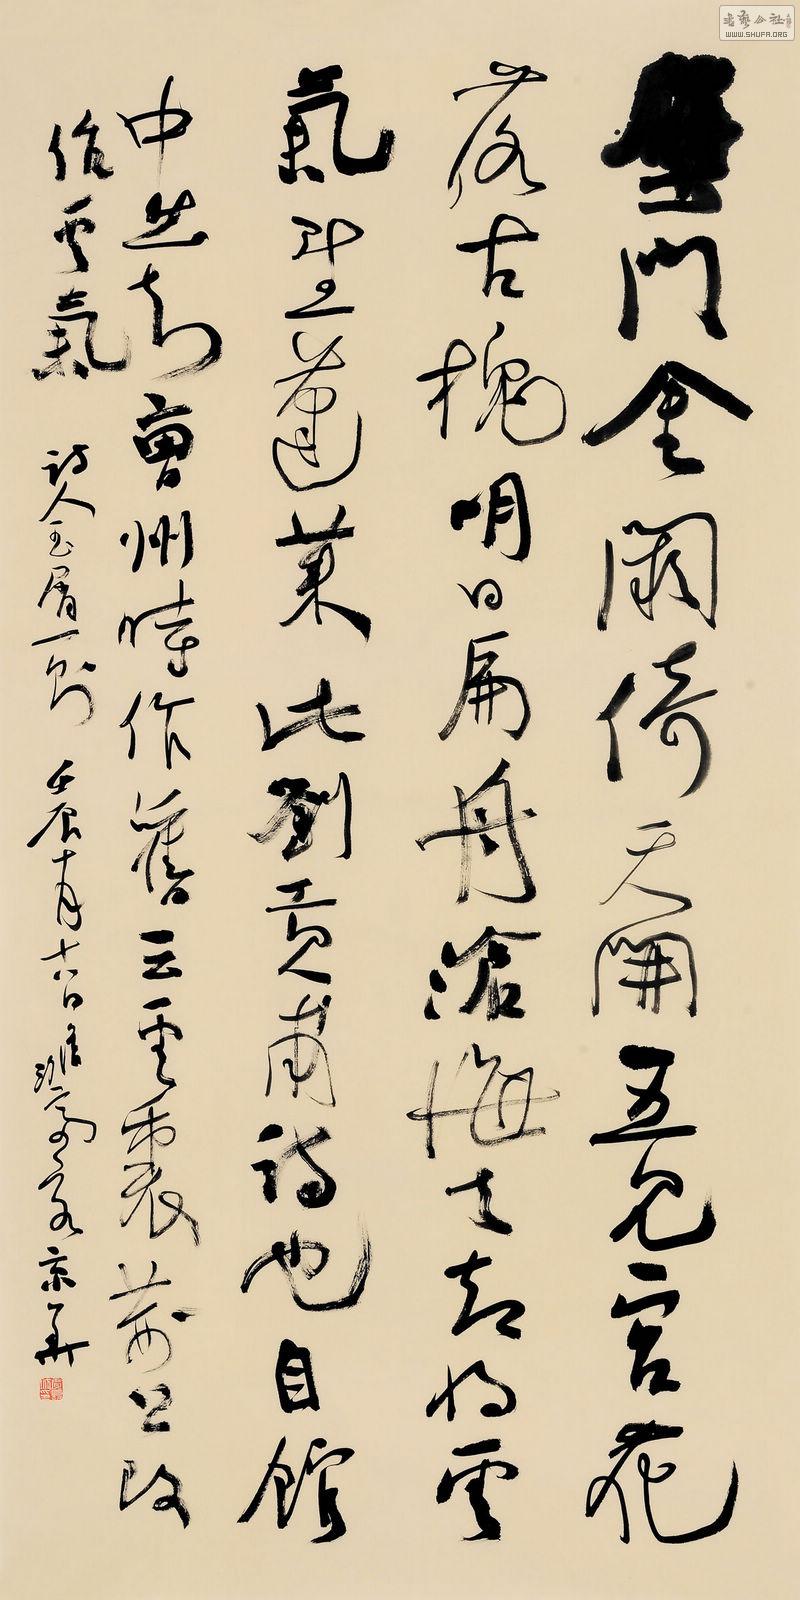 壁門金闕倚天開五見宮花
落古槐明日扁舟滄海去却將雲
氣望蓬萊此劉貢甫詩也自館
中出知曹州時作舊云雲裏荊公改
作雲氣
詩人玉屑一則
壬辰十月十六日
京華
書藝公社
WWW.SHUFA.ORG